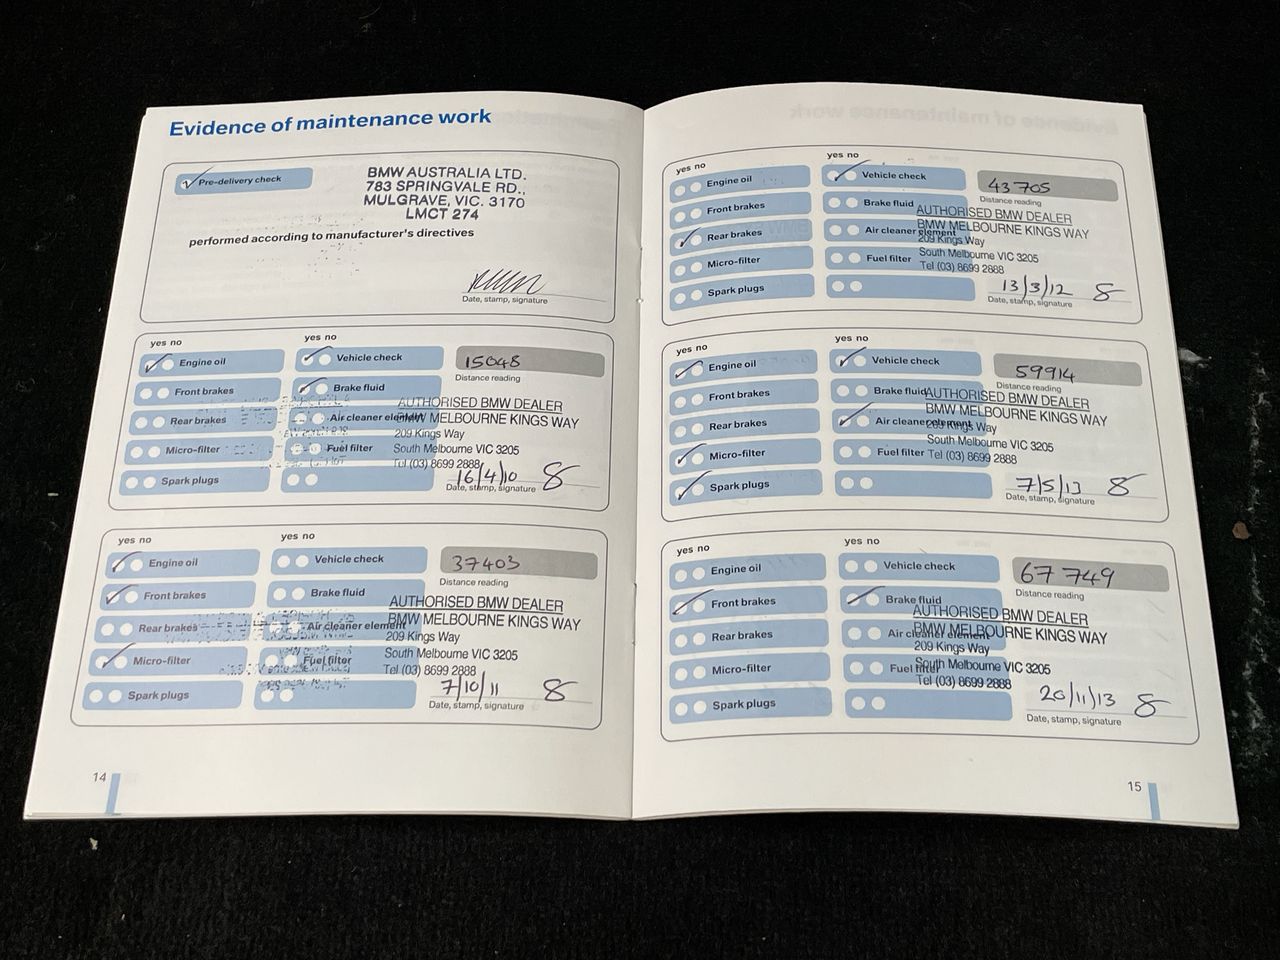 Evidence of maintenance work
Pre-delivery check
BMW AUSTRALIA LTD.
783 SPRINGVALE RD.,
MULGRAVE, VIC. 3170
LMCT 274
performed according to manufacturer's directives
Date, stamp, signature
yes no
yes no
Engine oil
Vehicle check
15048
Distance reading
Front brakes
Brake fluid
AUTHORISED BMW DEALER
Rear brakes
Air cleaner element
BMW MELBOURNE KINGS WAY
209 Kings Way
Micro-filter
Fuel filter
South Melbourne VIC 3205
Tel (03) 8699 2888
Spark plugs
16/4/10 8
Date, stamp, signature
yes no
yes no
Engine oil
Vehicle check
37403
Distance reading
Front brakes
Brake fluid
AUTHORISED BMW DEALER
Rear brakes
Air cleaner element
BMW MELBOURNE KINGS WAY
209 Kings Way
Micro-filter
Fuel filter
South Melbourne VIC 3205
Tel (03) 8699 2888
Spark plugs
7/10/11 8
Date, stamp, signature
14
yes no
yes no
Engine oil
Vehicle check
43705
Distance reading
Front brakes
Brake fluid
AUTHORISED BMW DEALER
Rear brakes
Air cleaner element
BMW MELBOURNE KINGS WAY
209 Kings Way
Micro-filter
Fuel filter
South Melbourne VIC 3205
Tel (03) 8699 2888
Spark plugs
13/3/12 8
Date, stamp, signature
yes no
yes no
Engine oil
Vehicle check
59914
Distance reading
Front brakes
Brake fluid
AUTHORISED BMW DEALER
Rear brakes
Air cleaner element
BMW MELBOURNE KINGS WAY
209 Kings Way
Micro-filter
Fuel filter
South Melbourne VIC 3205
Tel (03) 8699 2888
Spark plugs
7/5/13 8
Date, stamp, signature
yes no
yes no
Engine oil
Vehicle check
67 749
Distance reading
Front brakes
Brake fluid
AUTHORISED BMW DEALER
Rear brakes
Air cleaner element
BMW MELBOURNE KINGS WAY
209 Kings Way
Micro-filter
Fuel filter
South Melbourne VIC 3205
Tel (03) 8699 2888
Spark plugs
20/11/13 8
Date, stamp, signature
15